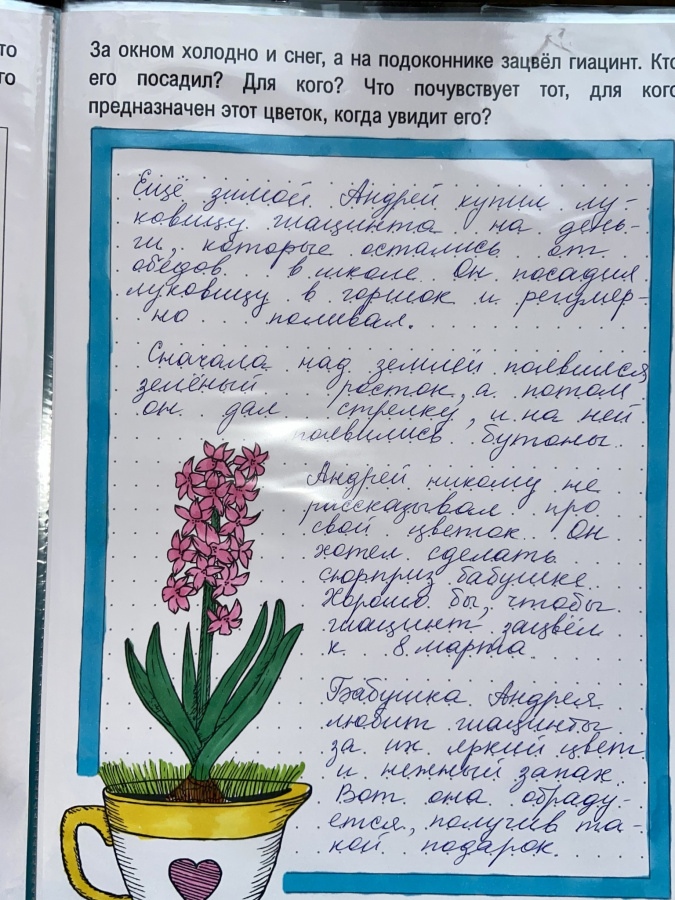 то
го
За окном холодно и снег, а на подоконнике зацвёл гиацинт. Кто
его посадил? Для кого? Что почувствует тот, для кого
предназначен этот цветок, когда увидит его?
Ещё зимой Андрей купил лу-
ковицу гиацинта на день-
ги, которые остались от
обедов в школе. Он посадил
луковицу в горшок и регуляр-
но поливал.
Сначала над землёй появился
зелёный росток, а потом
он дал стрелку, и на ней
появились бутоны.
Андрей никому не
рассказывал про
свой цветок. Он
хотел сделать
сюрприз бабушке.
Хорошо бы, чтобы
гиацинт зацвёл
к 8 марта
Бабушка Андрея
любит гиацинты
за их яркий цвет
и нежный запах.
Вот она обраду-
ется, получив та-
кой подарок.